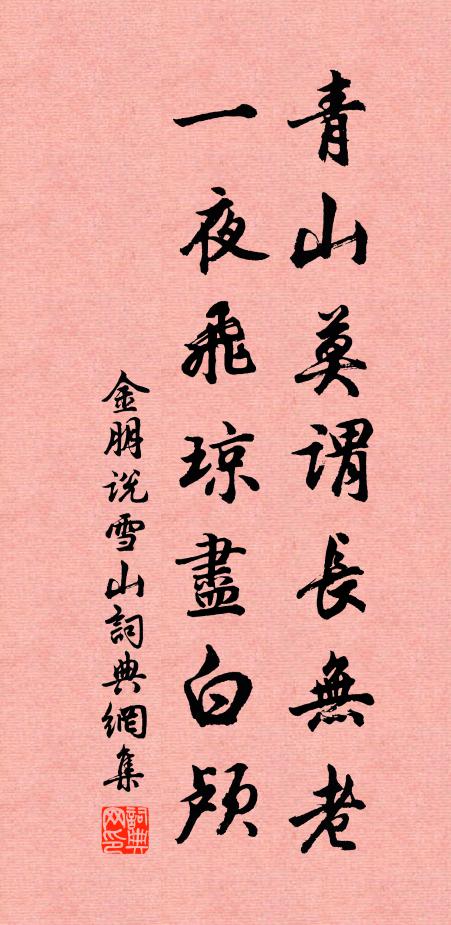 青山莫謂長無老
一夜飛瓊盡白颅
金朋说雪山詞典網集
詞典网印